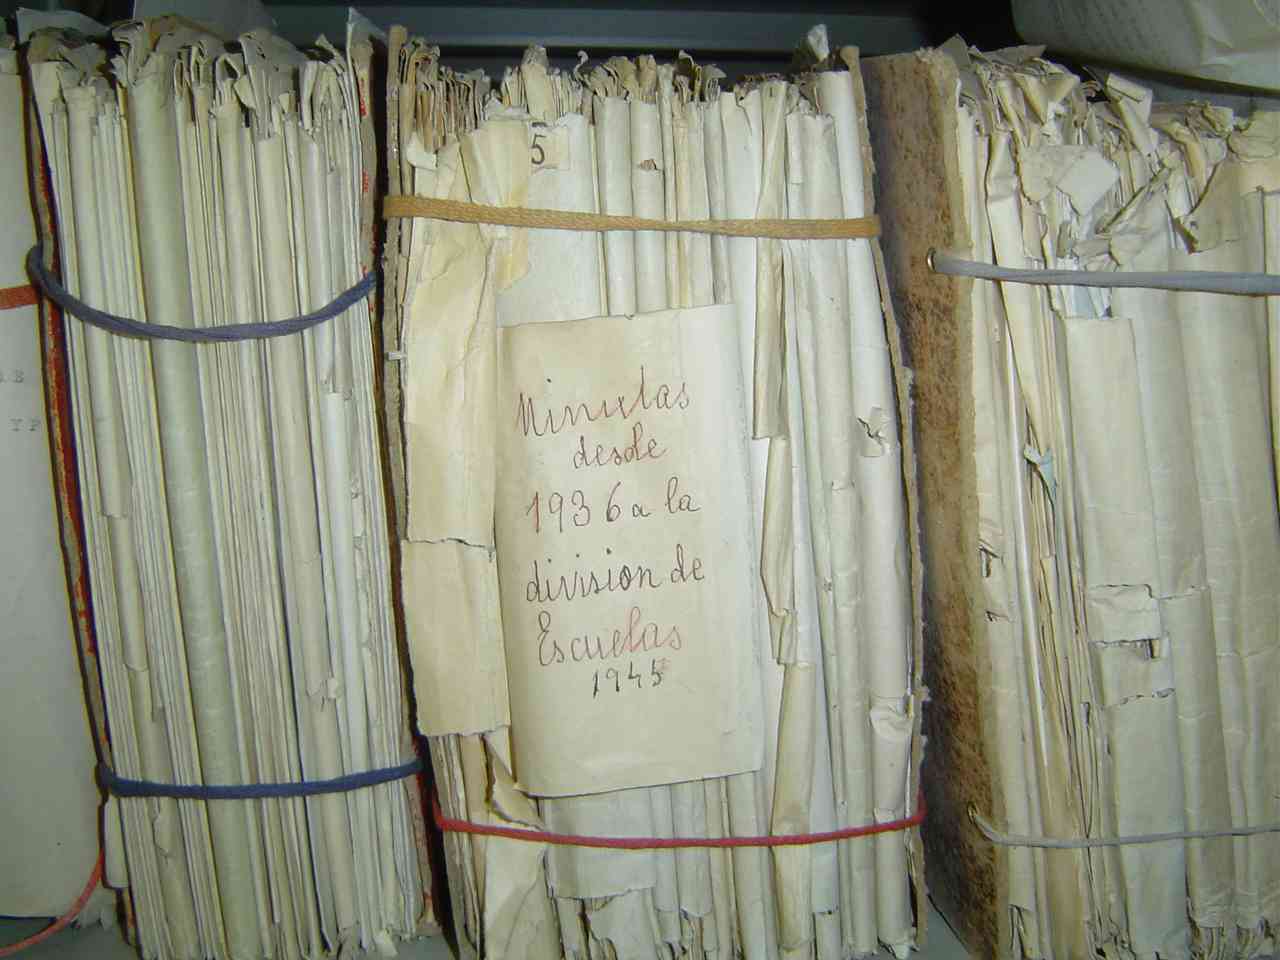 5
Minutas
desde
1936 a la
division de
Escuelas
1945
Y P